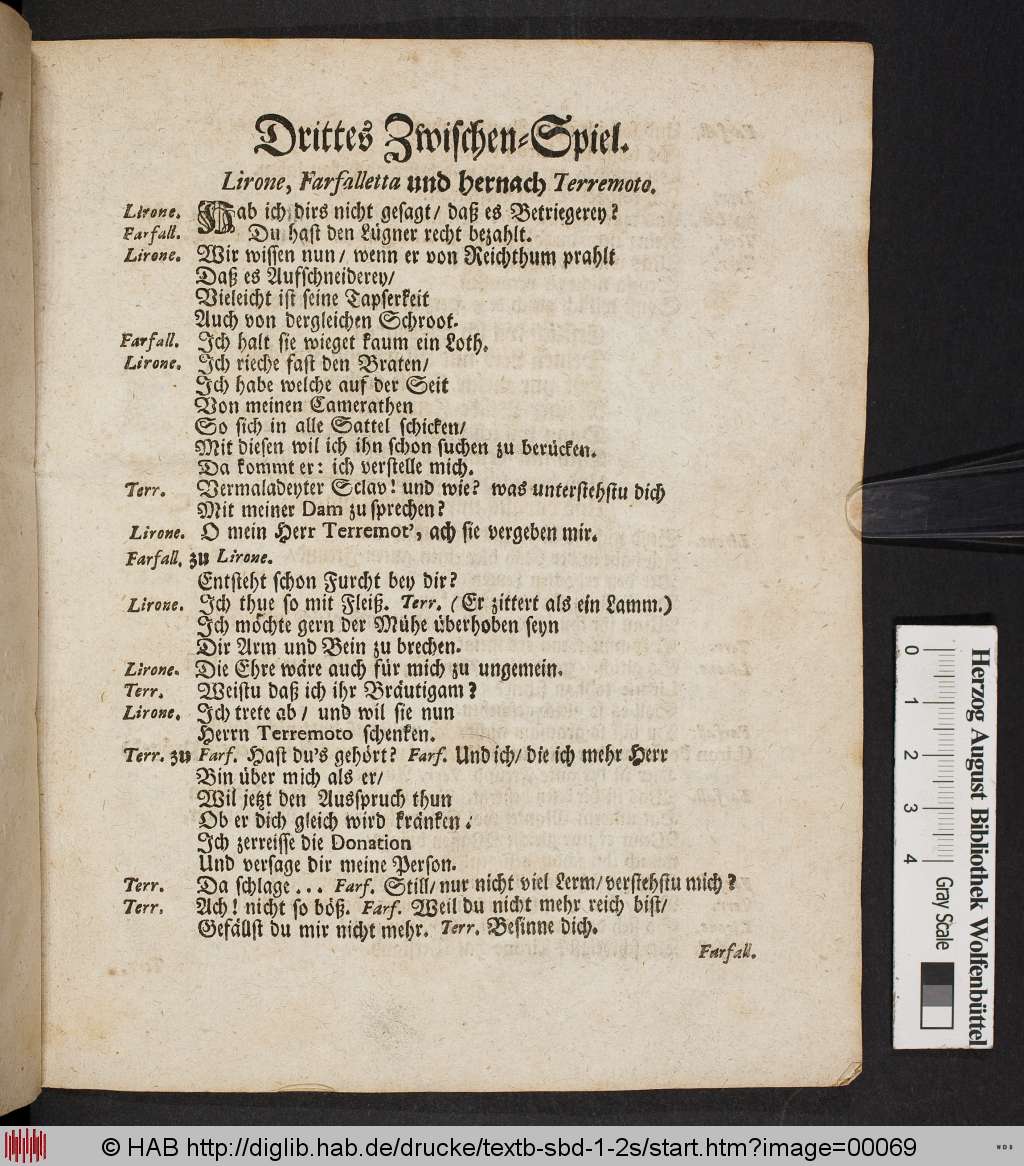 Drittes Zwischen-Spiel.
Lirone, Farfalletta und hernach Terremoto.
Lirone. Hab ich dirs nicht gesagt/ daß es Betriegerey?
Farfall. Du hast den Lügner recht bezahlt.
Lirone. Wir wissen nun/ wenn er von Reichthum prahlt
Daß es Aufschneiderey/
Vieleicht ist seine Tapferkeit
Auch von dergleichen Schroot.
Farfall. Ich halt sie wieget kaum ein Loth.
Lirone. Ich rieche fast den Braten/
Ich habe welche auf der Seit
Von meinen Camerathen
So sich in alle Sattel schicken/
Mit diesen wil ich ihn schon suchen zu berücken.
Da kommt er: ich verstelle mich.
Terr. Vermaladeyter Sclav! und wie? was unterstehstu dich
Mit meiner Dam zu sprechen?
Lirone. O mein Herr Terremot', ach sie vergeben mir.
Farfall. zu Lirone.
Entsteht schon Furcht bey dir?
Lirone. Ich thue so mit Fleiß. Terr. (Er zittert als ein Lamm.)
Ich möchte gern der Mühe überhoben seyn
Dir Arm und Bein zu brechen.
Lirone. Die Ehre wäre auch für mich zu ungemein.
Terr. Weistu daß ich ihr Bräutigam?
Lirone. Ich trete ab/ und wil sie nun
Herrn Terremoto schenken.
Terr. zu Farf. Hast du's gehört? Farf. Und ich/ die ich mehr Herr
Bin über mich als er/
Wil jetzt den Ausspruch thun
Ob er dich gleich wird kränken:
Ich zerreisse die Donation
Und versage dir meine Person.
Terr. Da schlage... Farf. Still/ nur nicht viel Lerm/ verstehstu mich?
Terr. Ach! nicht so böß. Farf. Weil du nicht mehr reich bist/
Gefällst du mir nicht mehr. Terr. Besinne dich.
Farfall.
0 1 2 3 4
Herzog August Bibliothek Wolfenbüttel
Gray Scale
© HAB http://diglib.hab.de/drucke/textb-sbd-1-2s/start.htm?image=00069